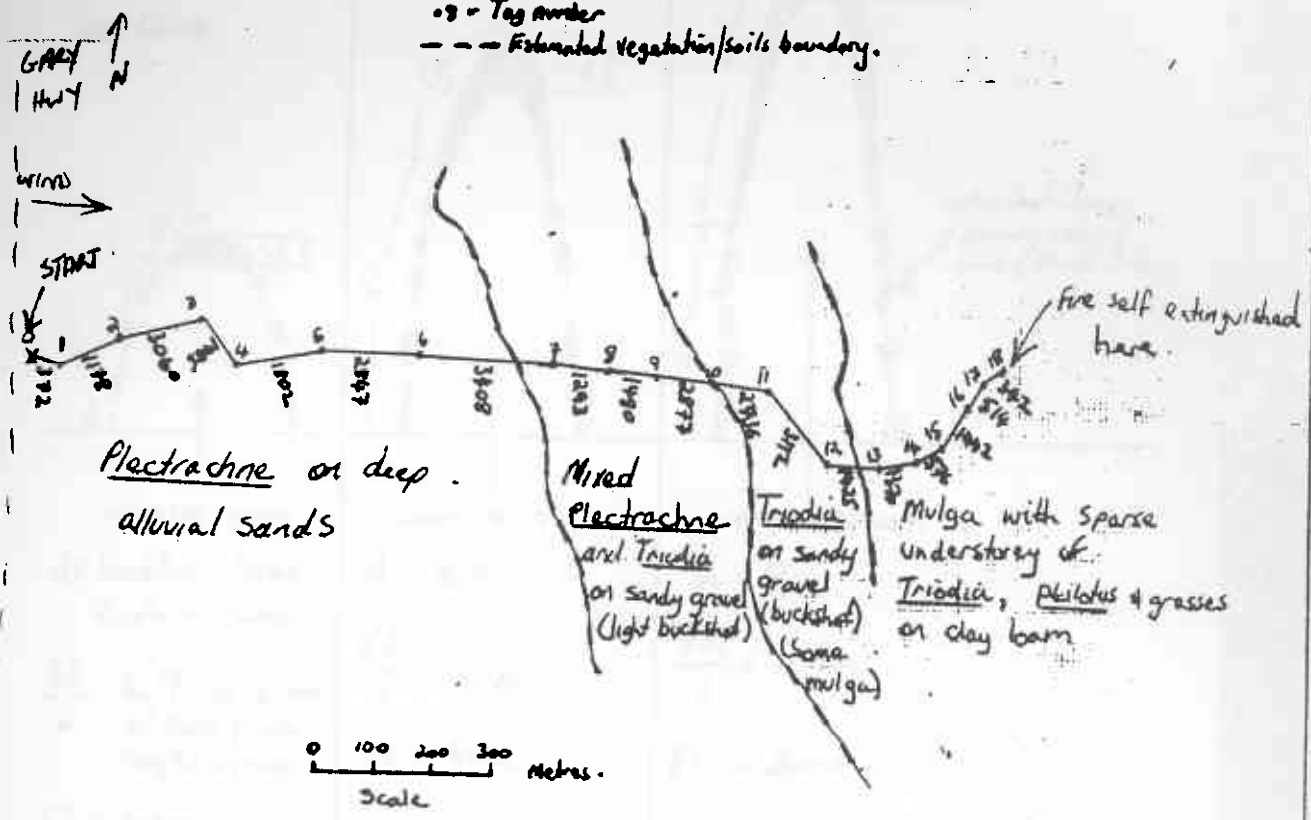 .8 = Tag number
--- Estimated vegetation/soils boundary.
GARY
HWY
N
WIND
START
0
1
2
3
4
5
6
7
8
9
10
11
12
13
14
15
16
17
18
372
1178
3060
1802
2547
3408
1243
1490
2877
Fire self extinguished
here.
Plectrachne on deep.
alluvial sands
Mixed
Plectrachne
and Triodia
on sandy gravel
(light buckshot)
Triodia
on sandy
gravel
(buckshot)
(some
mulga)
Mulga with sparse
understorey of
Triodia, ptilotus & grasses
on clay loam
0 100 200 300 Metres.
Scale